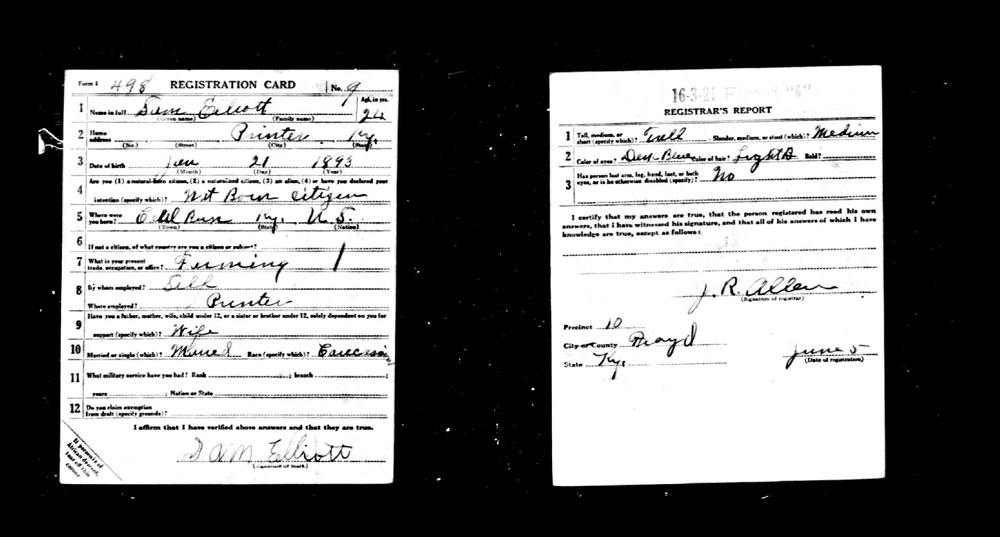 Form 1 498 REGISTRATION CARD No. 9
1 Name in full Sam Elliott Age, in yrs. 24
(Given name) (Family name)
2 Home address Printer Ky.
(No.) (Street) (City) (State)
3 Date of birth Jan 21 1893
(Month) (Day) (Year)
4 Are you (1) a natural-born citizen, (2) a naturalized citizen, (3) an alien, (4) or have you declared your
intention (specify which)? Nat Born Citizen
5 Where were you born? Ky. U. S.
(Town) (State) (Nation)
6 If not a citizen, of what country are you a citizen or subject?
7 What is your present trade, occupation, or office? Ferming 1
8 By whom employed? Self
Where employed? Printer
9 Have you a father, mother, wife, child under 12, or a sister or brother under 12, solely dependent on you for
support (specify which)? Wife
10 Married or single (which)? Race (specify which)?
11 What military service have you had? Rank ; branch ;
years ; Nation or State
12 Do you claim exemption from draft (specify grounds)?
I affirm that I have verified above answers and that they are true.
Sam Elliott
If person is of African descent, tear off this corner
16-3-21
REGISTRAR'S REPORT
1 Tall, medium, or short (specify which)? Tall Slender, medium, or stout (which)? Medium
2 Color of eyes? Color of hair? Bald?
3 Has person lost arm, leg, hand, foot, or both eyes, or is he otherwise disabled (specify)? No
I certify that my answers are true, that the person registered has read his own
answers, that I have witnessed his signature, and that all of his answers of which I have
knowledge are true, except as follows:
J. R. Allen
(Signature of registrar)
Precinct 10
City or County Floyd
State Ky.
June 5
(Date of registration)